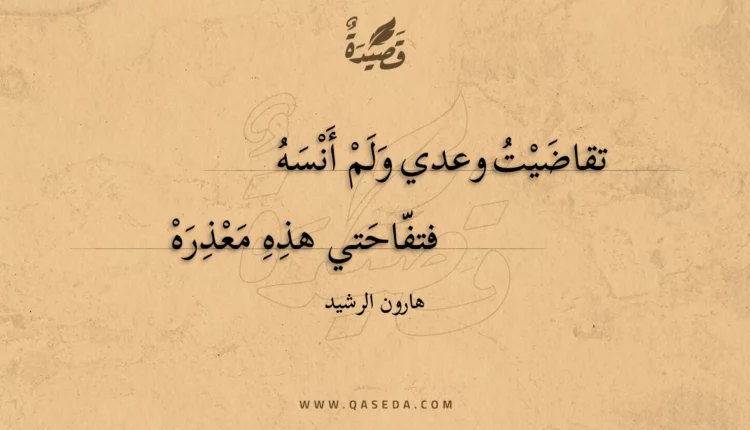 قَصِيْدَةٌ
تقاضَيْتُ وعدي وَلَمْ أَنْسَهُ
فتفّاحَتي هذِهِ مَعْذِرَهْ
هارون الرشيد
WWW.QASEDA.COM